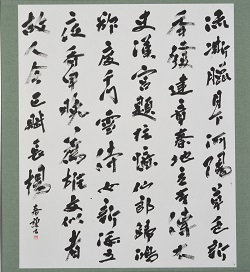 流澌臘月下河陽草色新
年發建章秦地立春傳太
史漢宮題柱憶仙郎歸鴻
欲度千門雪侍女新添五
夜香早晚薦雄文似者
故人今已賦長楊